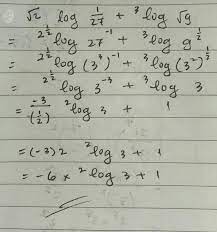 √2 log 1/27 + ³log √9
= 2^½ log 27⁻¹ + ³log 9^½
= 2^½ log (3³)⁻¹ + ³log (3²)^½
= 2^½ log 3⁻³ + ³log 3
= -3/(½) ²log 3 + 1
= (-3) 2 ²log 3 + 1
= -6 × ²log 3 + 1